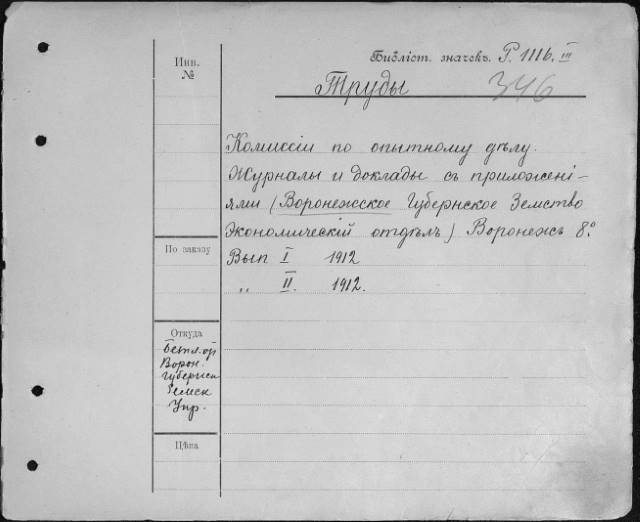 Инв.
№
Библіот. значекъ. P. 111b. III
Труды
346
Комиссіи по опытному дѣлу.
Журналы и доклады съ приложені-
ями (Воронежское Губернское Земство
Экономическій отдѣлъ) Воронежъ 8º
По заказу
Вып I 1912
„ II. 1912.
Откуда
Безпл. от
Ворон.
Губернск
Земск
Упр.
Цѣна